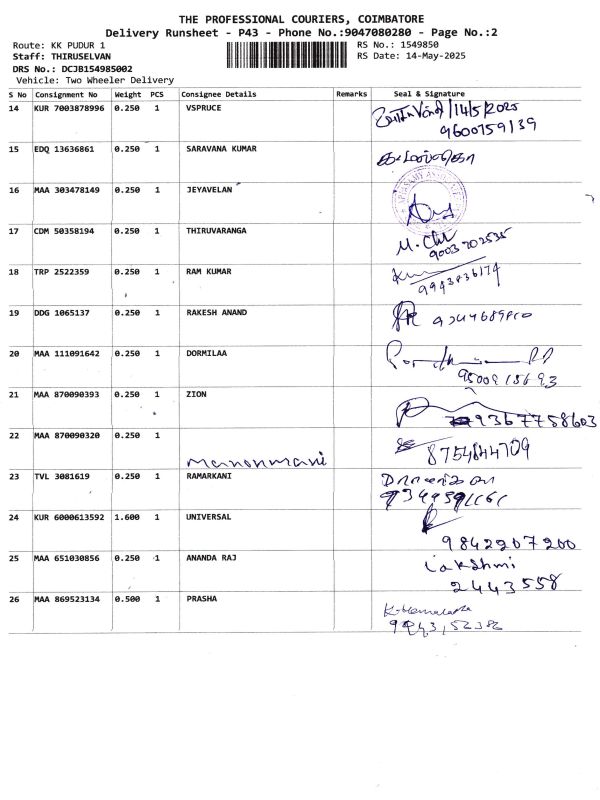 THE PROFESSIONAL COURIERS, COIMBATORE
Delivery Runsheet - P43 - Phone No.:9047080280 - Page No.:2
Route: KK PUDUR 1
Staff: THIRUSELVAN
DRS No.: DCJB154985002
Vehicle: Two Wheeler Delivery
RS No.: 1549850
RS Date: 14-May-2025
S No Consignment No Weight PCS Consignee Details Remarks Seal & Signature
14 KUR 7003878996 0.250 1 VSPRUCE /14/5/2025
9600759139
15 EDQ 13636861 0.250 1 SARAVANA KUMAR
16 MAA 303478149 0.250 1 JEYAVELAN
17 CDM 50358194 0.250 1 THIRUVARANGA
9003702535
18 TRP 2522359 0.250 1 RAM KUMAR
9943836174
19 DDG 1065137 0.250 1 RAKESH ANAND
20 MAA 111091642 0.250 1 DORMILAA
9500915693
21 MAA 870090393 0.250 1 ZION
9367758603
22 MAA 870090320 0.250 1
manonmani
8754844709
23 TVL 3081619 0.250 1 RAMARKANI
24 KUR 6000613592 1.600 1 UNIVERSAL
9842207200
25 MAA 651030856 0.250 1 ANANDA RAJ Lakshmi
2443558
26 MAA 869523134 0.500 1 PRASHA